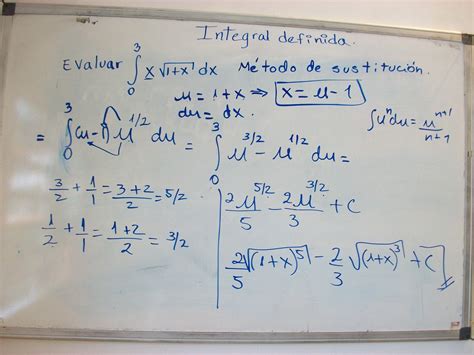 Integral definida.
Evaluar ∫₀³ x √(1+x) dx Método de sustitución.
u = 1+x ⇒ x = u - 1
du = dx.
∫uⁿdu = uⁿ⁺¹/n+1
= ∫₀³ (u-1) u^1/2 du = ∫₀³ u^3/2 - u^1/2 du =
3/2 + 1/1 = 3+2/2 = 5/2
1/2 + 1/1 = 1+2/2 = 3/2
2u^5/2/5 - 2u^3/2/3 + C
2/5 √(1+x)⁵ - 2/3 √(1+x)³ + C